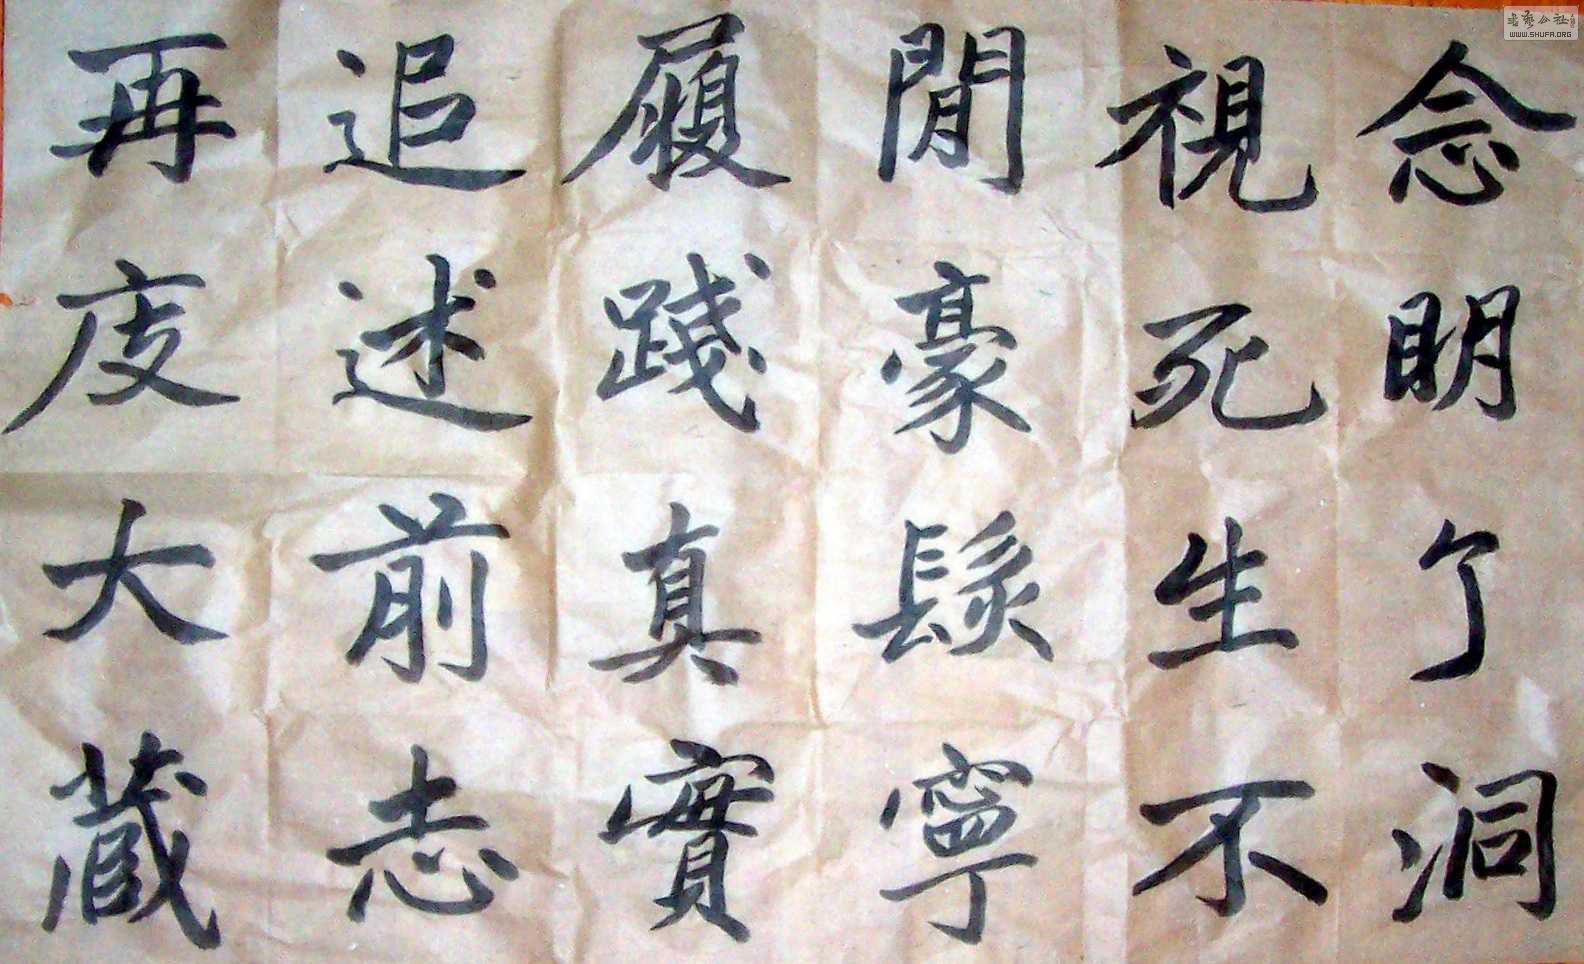 念明了洞
視死生不
閒豪髮寧
履踐真實
追述前志
再度大藏
WWW.SHUFA.ORG